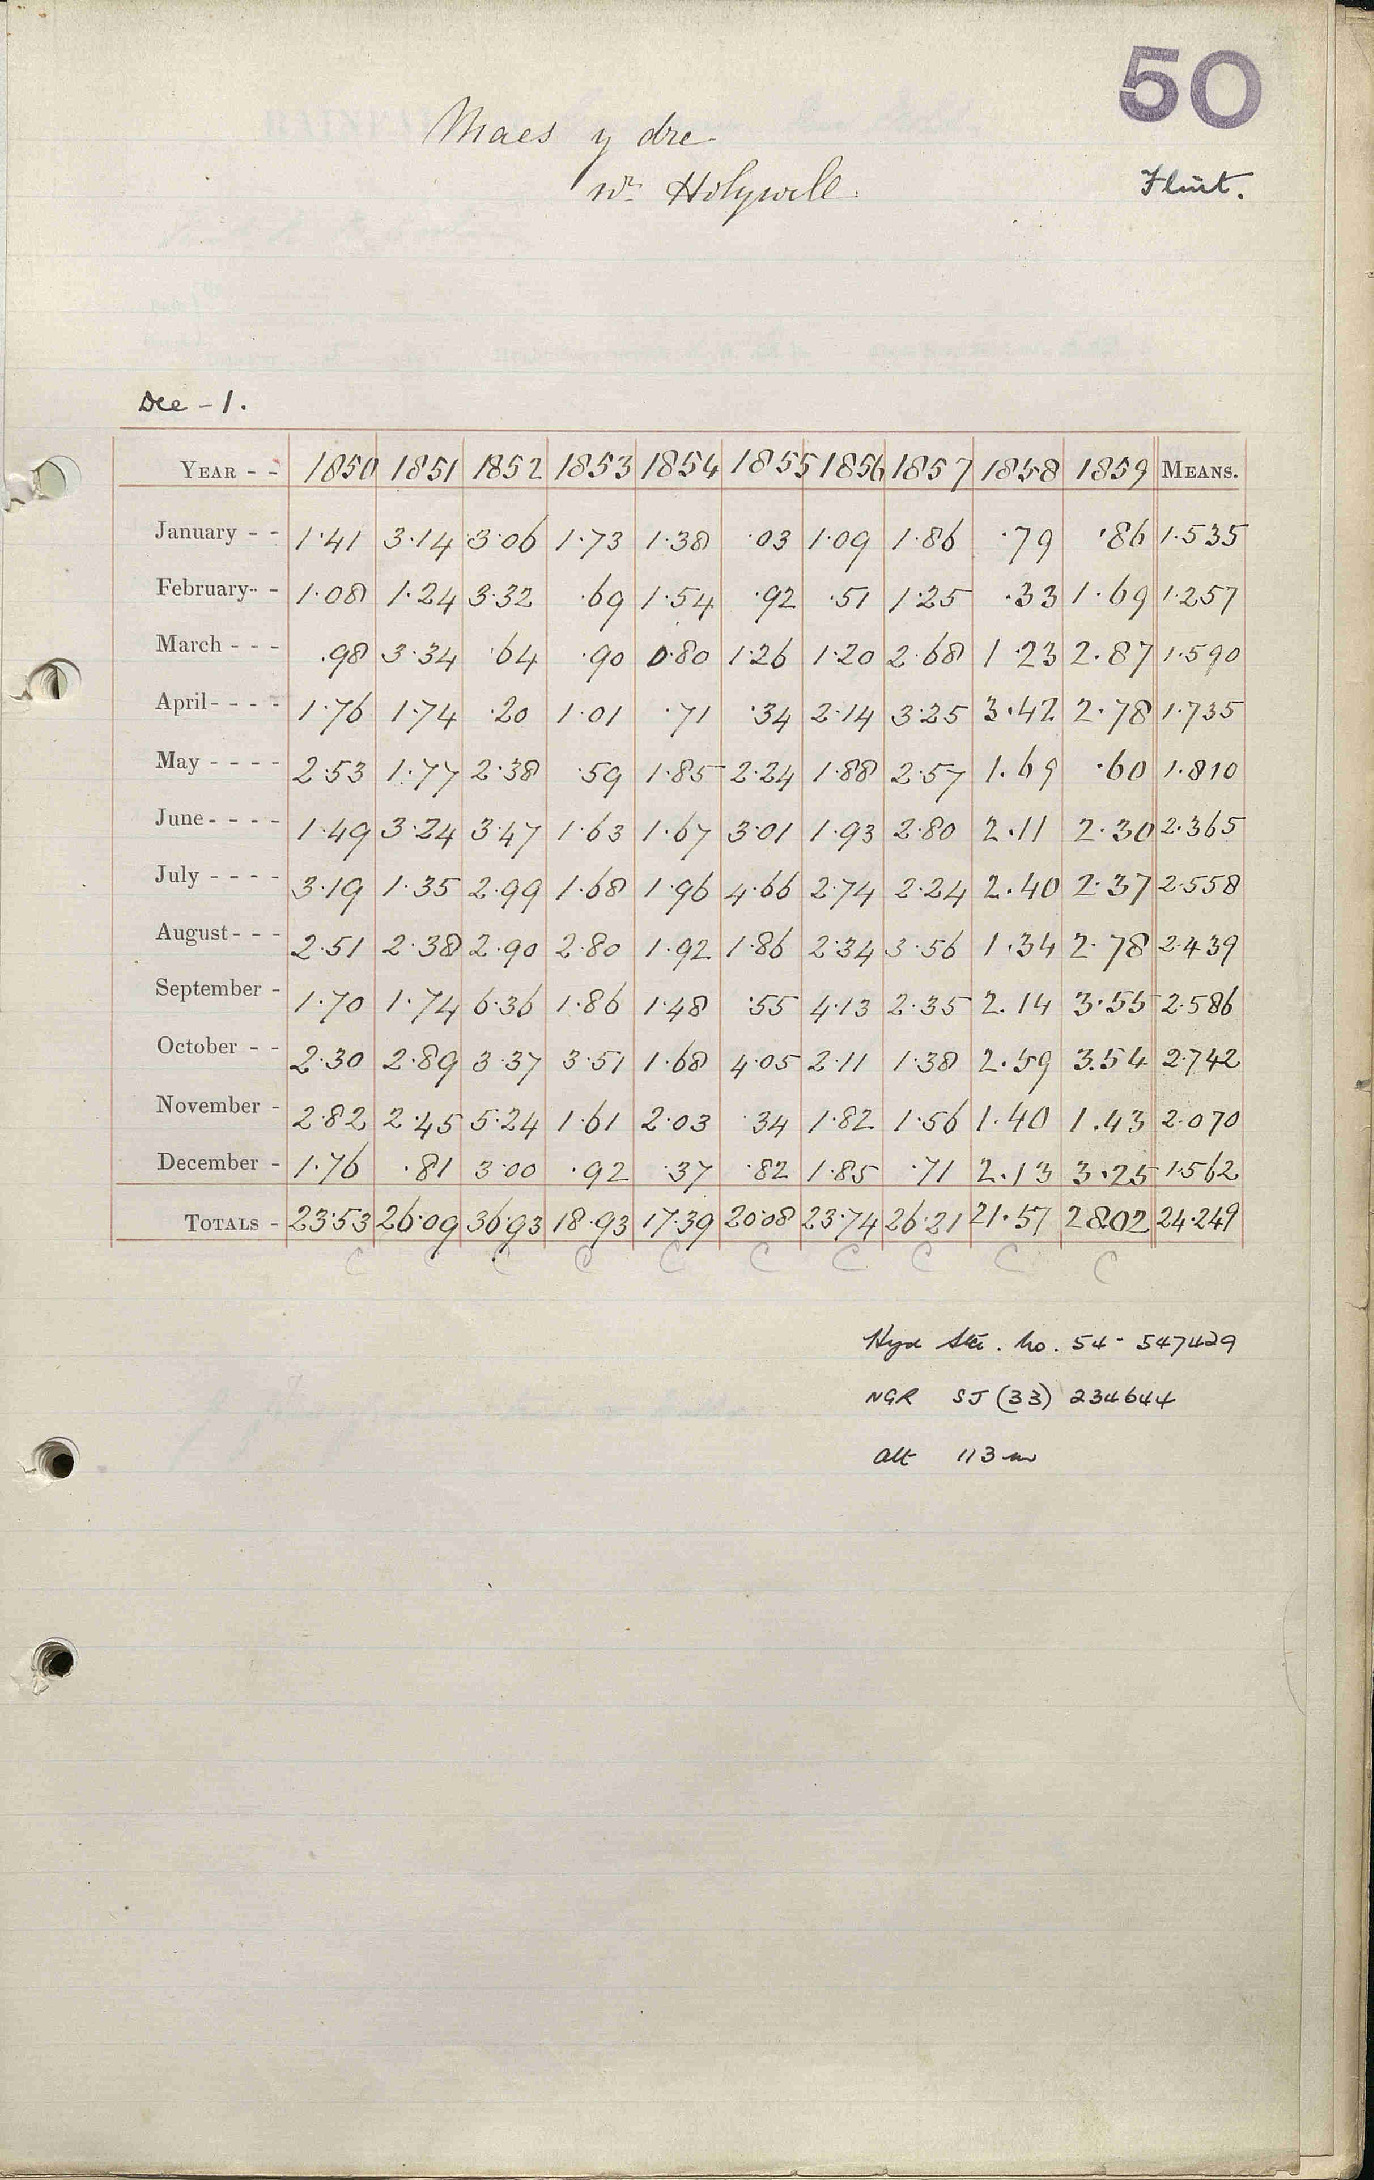 50
Maes y dre
nr. Holywell
Flint.
Dee - 1.
YEAR - - 1850 1851 1852 1853 1854 1855 1856 1857 1858 1859 MEANS.
January - - 1.41 3.14 3.06 1.73 1.38 .03 1.09 1.86 .79 .86 1.535
February - - 1.08 1.24 3.32 .69 1.54 .92 .51 1.25 .33 1.69 1.257
March - - - .98 3.34 .64 .90 0.80 1.26 1.20 2.68 1.23 2.87 1.590
April - - - - 1.76 1.74 .20 1.01 .71 .34 2.14 3.25 3.42 2.78 1.735
May - - - - 2.53 1.77 2.38 .59 1.85 2.24 1.88 2.57 1.69 .60 1.810
June - - - - 1.49 3.24 3.47 1.63 1.67 3.01 1.93 2.80 2.11 2.30 2.365
July - - - - 3.19 1.35 2.99 1.68 1.96 4.66 2.74 2.24 2.40 2.37 2.558
August - - - 2.51 2.38 2.90 2.80 1.92 1.86 2.34 3.56 1.34 2.78 2.439
September - 1.70 1.74 6.36 1.86 1.48 .55 4.13 2.35 2.14 3.55 2.586
October - - 2.30 2.89 3.37 3.51 1.68 4.05 2.11 1.38 2.59 3.54 2.742
November - 2.82 2.45 5.24 1.61 2.03 .34 1.82 1.56 1.40 1.43 2.070
December - 1.76 .81 3.00 .92 .37 .82 1.85 .71 2.13 3.25 1.562
TOTALS - 23.53 26.09 36.93 18.93 17.39 20.08 23.74 26.21 21.57 28.02 24.249
C C C C C C C C C C
Hyd Stn. No. 54-547429
NGR SJ (33) 234644
Alt 113 m